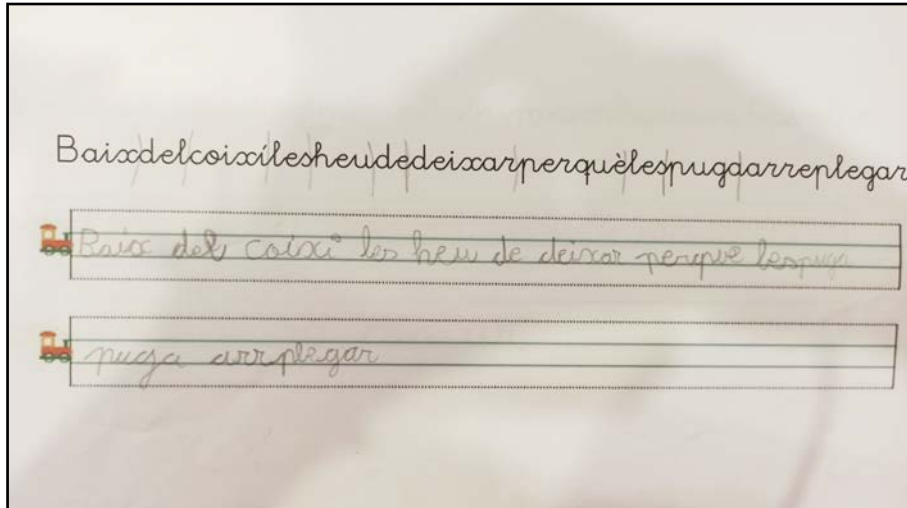 Baixdelcoixílesheudedeixarperquèlespugaarreplegar
Baix del coixi les heu de deixar perque les puga
puga arrplegar